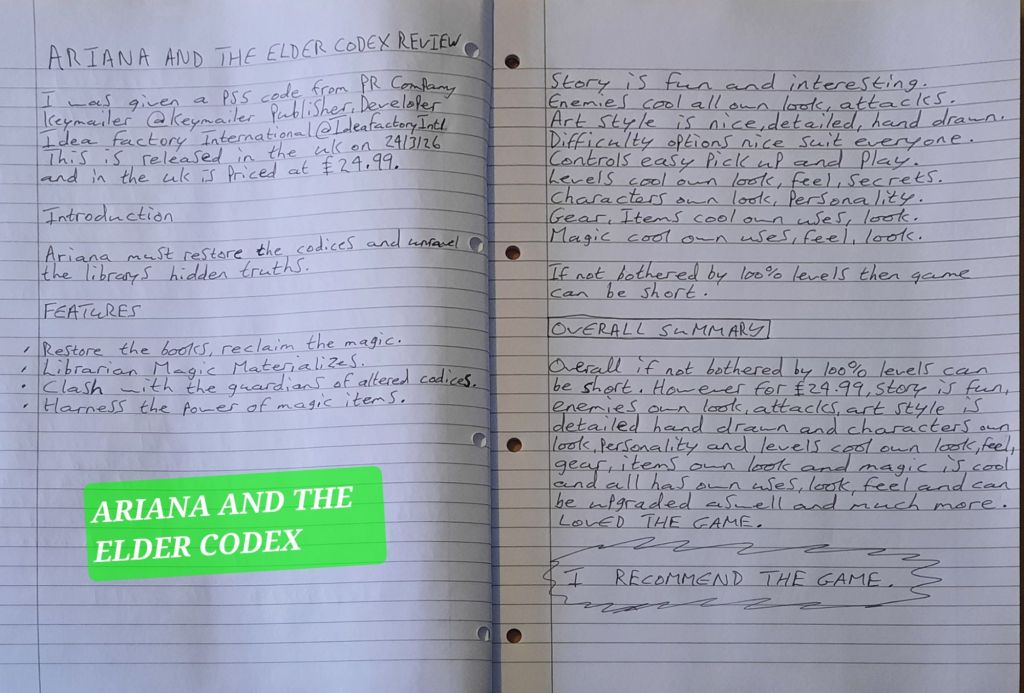 ARIANA AND THE ELDER CODEX REVIEW
I was given a PS5 code from PR Company
Keymailer @keymailer Publisher, Developer
Idea Factory International @IdeafactoryIntl
This is released in the uk on 24/3/26
and in the uk is Priced at £24.99.
Introduction
Ariana must restore the codices and unravel
the librarys hidden truths.
FEATURES
• Restore the books, reclaim the magic.
• Librarian Magic Materializes.
• Clash with the guardians of altered codices.
• Harness the power of magic items.
ARIANA AND THE
ELDER CODEX
Story is fun and interesting.
Enemies cool all own look, attacks.
Art Style is nice, detailed, hand drawn.
Difficulty options nice suit everyone.
Controls easy Pick up and Play.
Levels cool own look, feel, Secrets.
Characters own look, Personality.
Gear, Items cool own uses, look.
Magic cool own uses, feel, look.
If not bothered by 100% levels then game
can be short.
OVERALL SUMMARY
Overall if not bothered by 100% levels can
be short. However for £24.99, Story is fun,
enemies own look, attacks, art style is
detailed hand drawn and characters own
look, Personality and levels cool own look, feel,
gear, items own look and magic is cool
and all has own uses, look, feel and can
be upgraded aswell and much more.
LOVED THE GAME.
I RECOMMEND THE GAME.